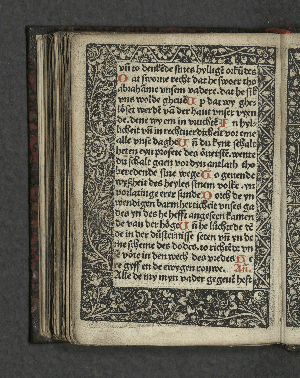 vñ to denkẽde sines hyllige orkũdes
Dat sworne recht dat he swoer tho
abrahame vnsem vadere. dat he sik
vns wolde gheuẽ Up dat wy ghe
löset werdẽ vã der hant vnser vyen
de. dene wy em in vruchtẽ In hyl-
licheit vñ in rechtuerdicheit vor eme
alle vnse daghe Uñ du kynt schalt
heten eyn profete des öuersten. wente
du schalt gaen vor dyn antlath tho
beredende sine wege To geuende
wyßheit des heyles sinem volke. yn
vorlatinge erer sunde Dorch de yn
wendigen barmherticheit vnses ga
des yn des he hefft angeseen kamen
de van der höge Uñ he lüchtede dẽ
de in der düsternisse seten vñ yn de
me scheme des dodes. to richtẽde vn
se vöte in den wech des vredes He
re gyff en de ewygen rouwe. Añ.
Alle de my myn vader gegeuẽ heft